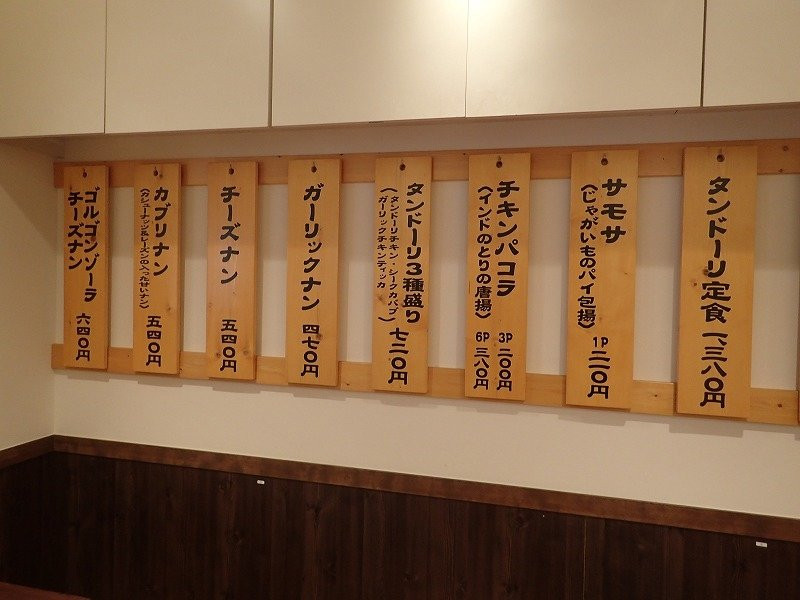 タンドーリ定食 一、三八〇円
サモサ
(じゃがいものパイ包揚)
1P 二一〇円
チキンパコラ
(インドのとりの唐揚)
3P 二〇〇円
6P 三八〇円
タンドーリ3種盛り
(タンドーリチキン・シークカバブ
ガーリックチキンティッカ)
七二〇円
ガーリックナン 四七〇円
チーズナン 五四〇円
カブリナン
(カシューナッツ&レーズンの入った甘いナン)
五四〇円
ゴルゴンゾーラ
チーズナン
六四〇円